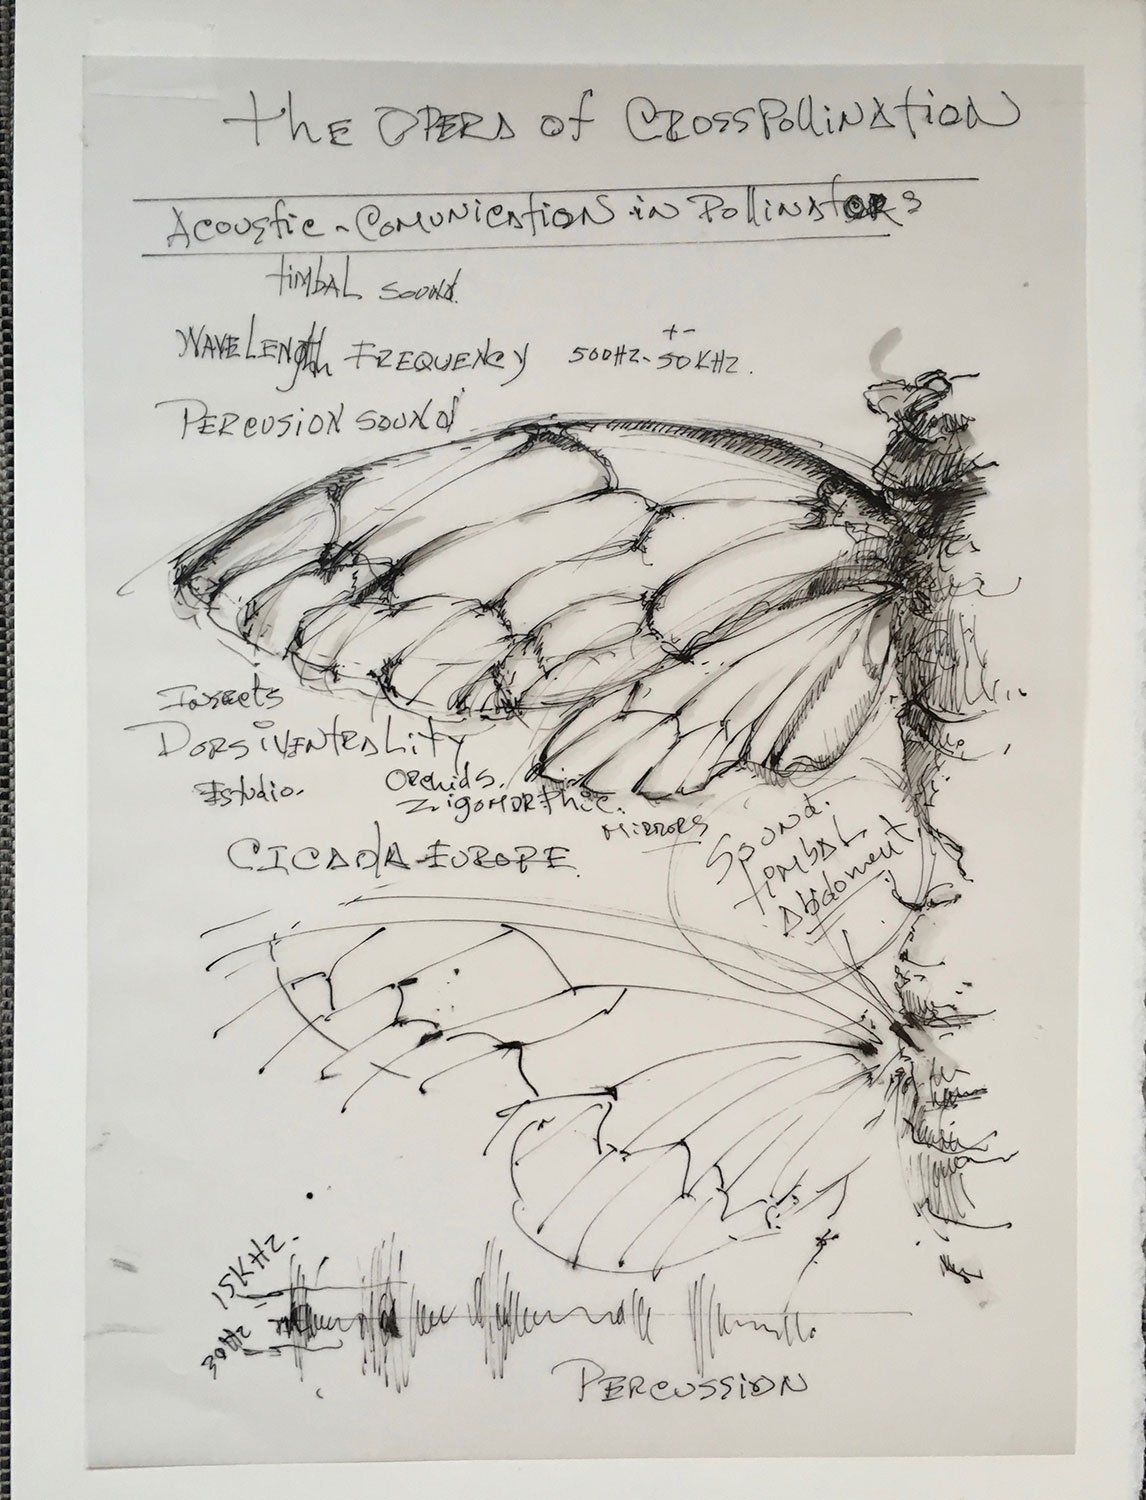 the OPERA of CROSSPollINAtION
Acoustic-Comunication in Pollinators
timbal sound.
WAVELENgth FREQUENCY 500HZ-50KHZ.
+-
PERCUSION SOUND
Insects
DORSIVENTRALity
Estudio.
Orchids.
ZigOMORPhic.
MIRRORS
Sound.
timbal
Abdoment
CICADA-EUROPE
15KHZ.
30HZ
PERCUSSION